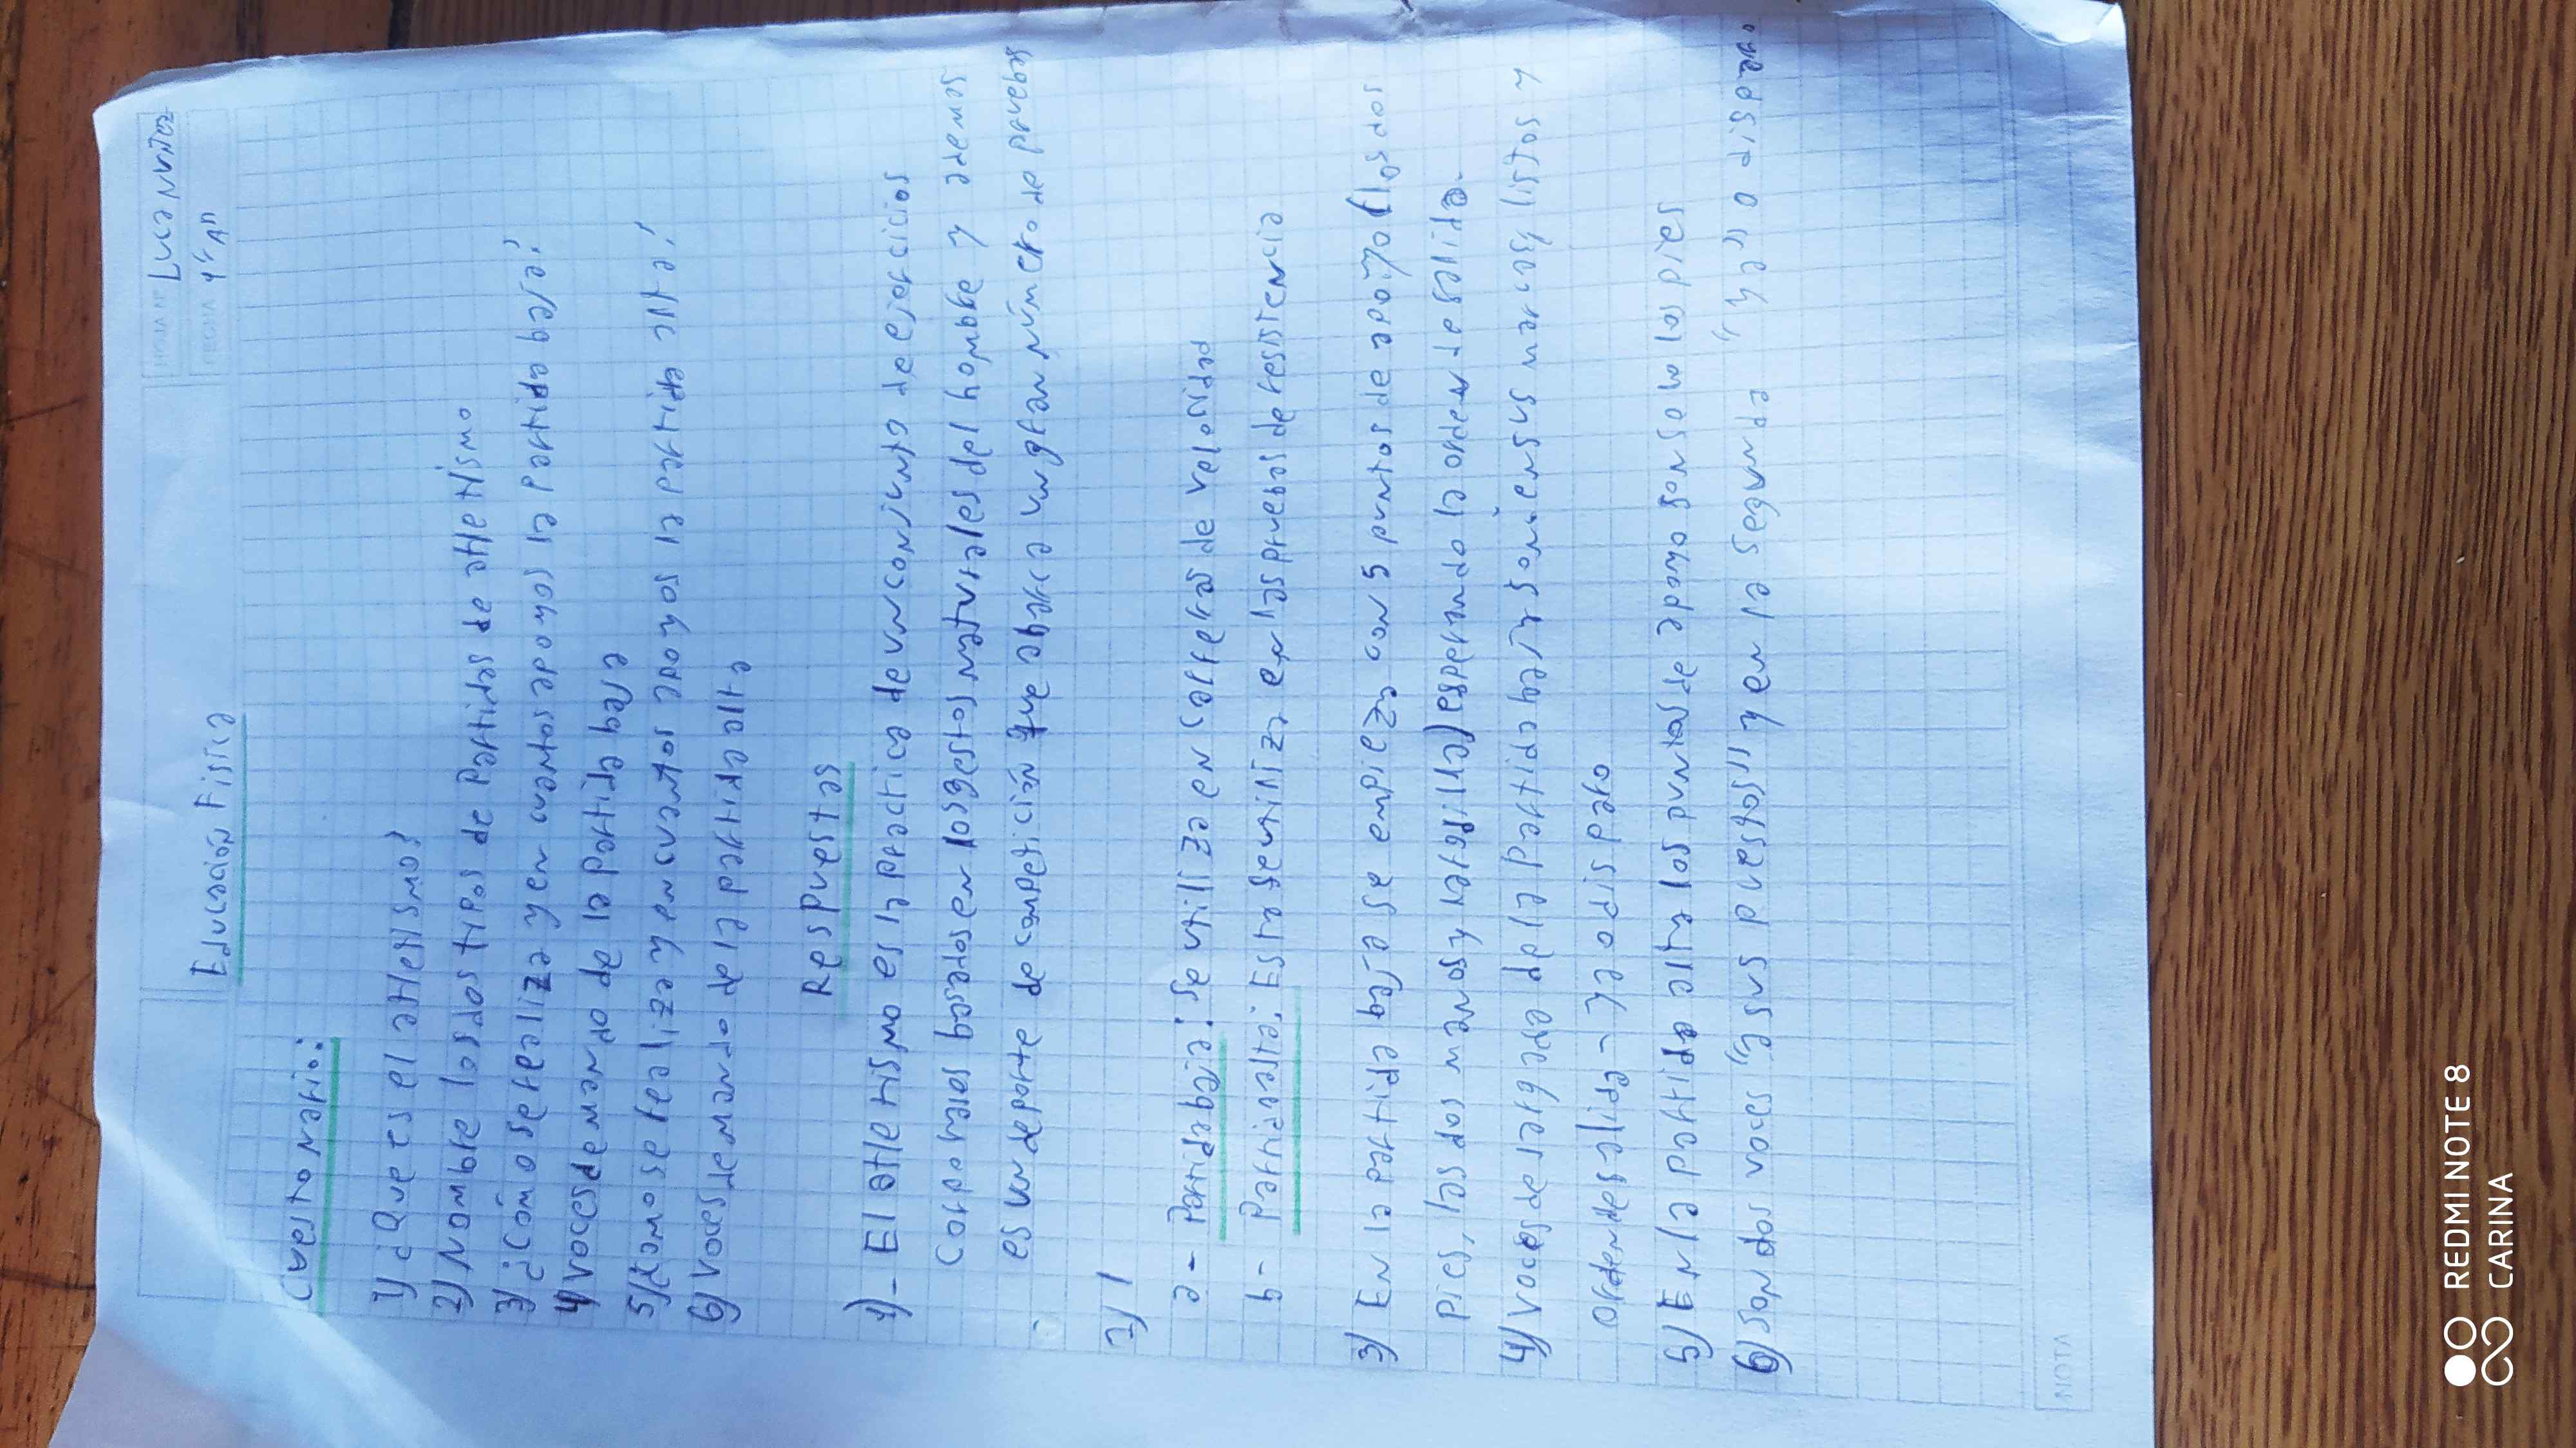 HOJA Nº Luca Nuñez
FECHA 4º AN
Educación Fisica
Cuestonario:
1) ¿Que es el atletismo?
2) Nombre los dos tipos de Partidas de atletismo
3) ¿Cómo se realiza y en cuantos apoyos la partida baja?
4) Voces de mando de la partida baja
5) ¿Como se realiza y en cuantos apoyos la partida alta?
6) Voces de mando de la partida alta
Respuestas
1)- El atletismo es la practica de un conjunto de ejercicios
corporales basados en los gestos naturales del hombre y ademas
es un deporte de competición que abarca un gran número de pruebas
2)
a - Partida baja: se utiliza en carreras de velosidad
b - Partida alta: Esta se utiliza en las pruebas de ressistencia
3) En la partida baja se empieza con 5 puntos de apoyo (los dos
pies, las dos manos y la rodilla) esperando la orden de salida.
4) Voces de la largada de la partida baja y son: en sus marcas, listos y
orden de salida - ya o disparo
5) En la partida alta los puntos de apoyo son solo los pies
6) Son dos voces "a sus puestos" y en la segunda "ya o disparo"
NOTA
REDMI NOTE 8
CARINA